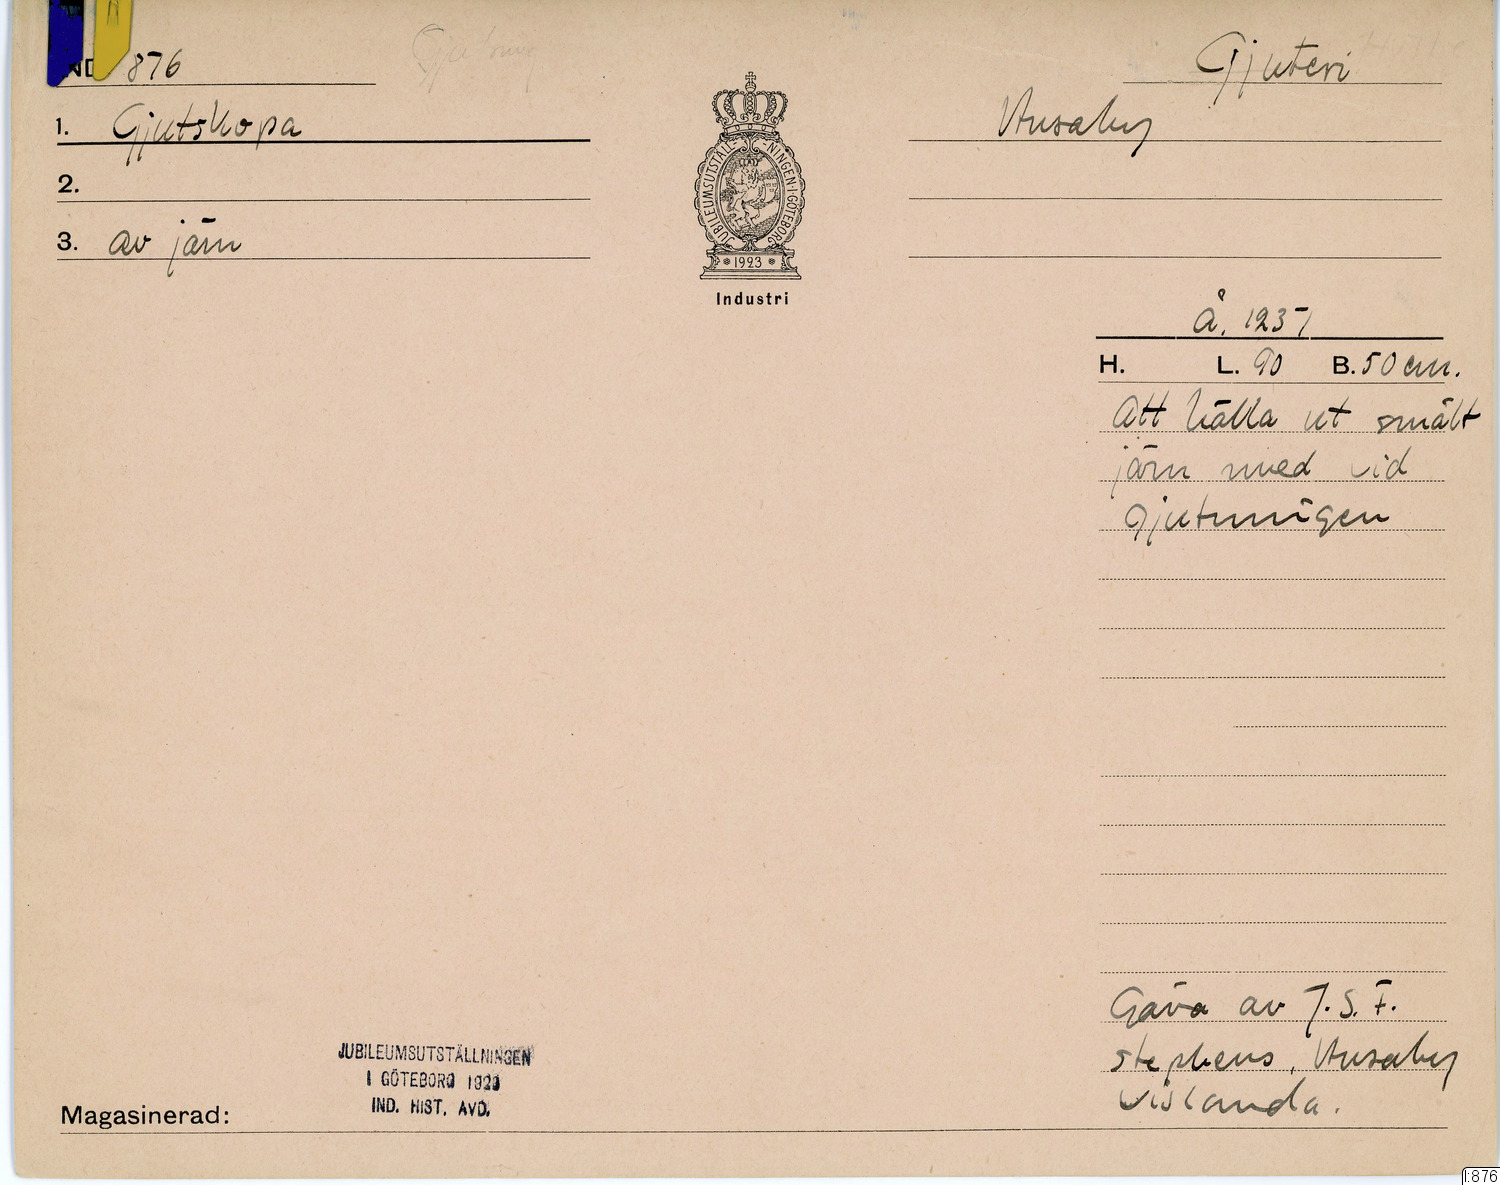 IND 876
Gjuteri
1. Gjutskopa
Husaby
2.
3. av järn
JUBILEUMSUTSTÄLL-NINGEN·I·GÖTEBORG
1923
Industri
Å. 1237
H. L. 90 B. 50 cm.
Att hälla ut smält
järn med vid
gjutningen
Gåva av J.S.F.
Stephens, Husaby
Vislanda.
JUBILEUMSUTSTÄLLNINGEN
I GÖTEBORG 1923
IND. HIST. AVD.
Magasinerad:
I:876